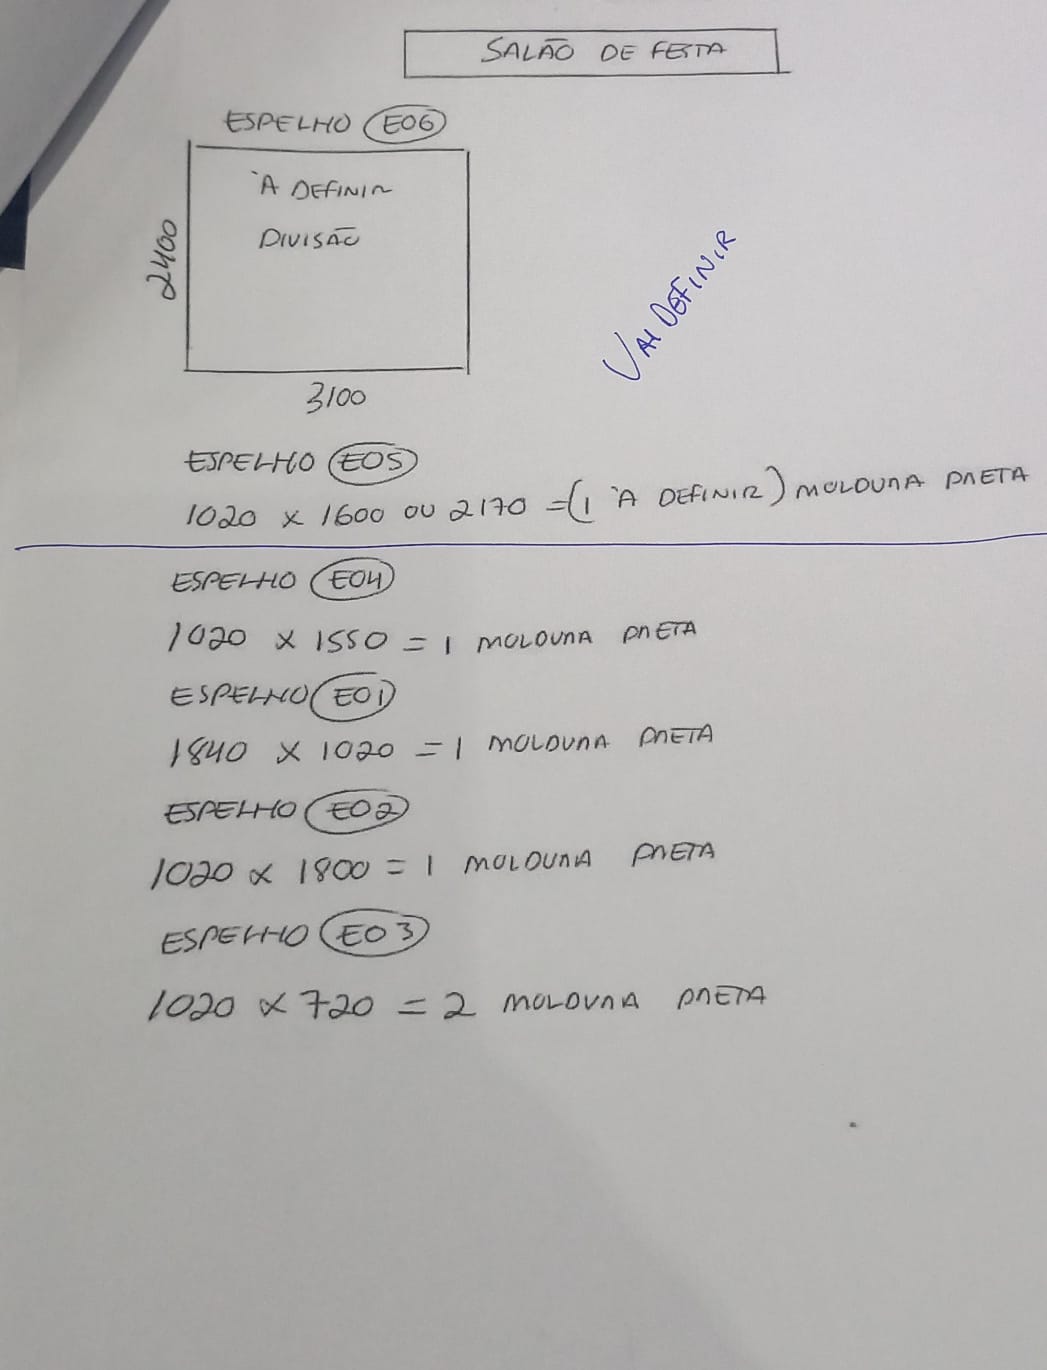 SALÃO DE FESTA
ESPELHO E06
À DEFINIR
DIVISÃO
2400
VAI DEFINIR
3100
ESPELHO E05
1020 x 1600 OU 2170 = (1 À DEFINIR) MOLDURA PRETA
ESPELHO E04
1020 x 1550 = 1 MOLDURA PRETA
ESPELHO E01
1840 x 1020 = 1 MOLDURA PRETA
ESPELHO E02
1020 x 1800 = 1 MOLDURA PRETA
ESPELHO E03
1020 x 720 = 2 MOLDURA PRETA